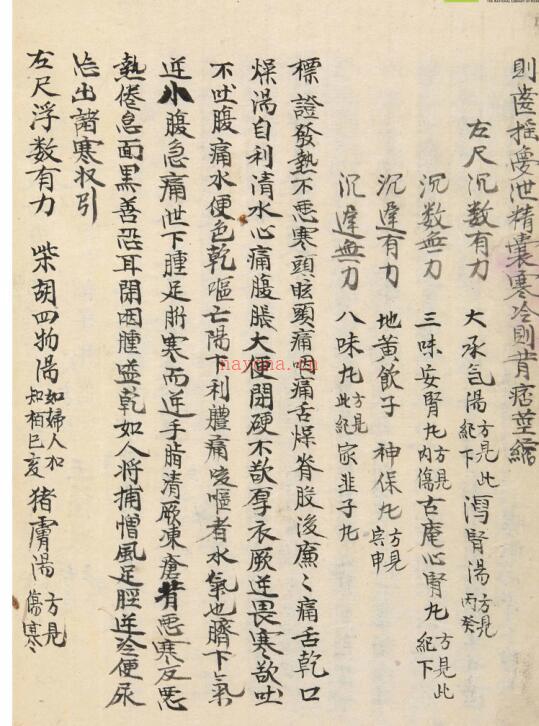 則齒搖夢泄精囊寒冷則背痃莖縮
左尺沉数有力 大承气湯方見此紀下 瀉腎湯方見丙癸
沉数無力 三味安腎丸方見內傷 古庵心腎丸方見此紀下
沉遲有力 地黃飮子 神保丸方見宾申
沉遲無力 八味丸方見此紀 家韭子丸
標證發熱不悪寒頭眩頭痛咽痛舌燥脊股後廉〻痛舌乾口
燥渴自利清水心痛腹脹大便閉硬不欲厚衣厥逆畏寒欲吐
不吐腹痛水便色乾嘔亡陽下利體痛咳嘔者水氣也臍下气
逆小腹急痛泄下腫足胻寒而逆手脐清厥凍瘡背悪寒反悪
熱倦怠面黒善恐耳閉咽腫嗌乾如人将捕憎風足脛逆冷便尿
冶出諸寒収引
左尺浮数有力 柴胡四物湯如婦人加知栢巳亥 猪膚湯方見傷寒
nayona.cn